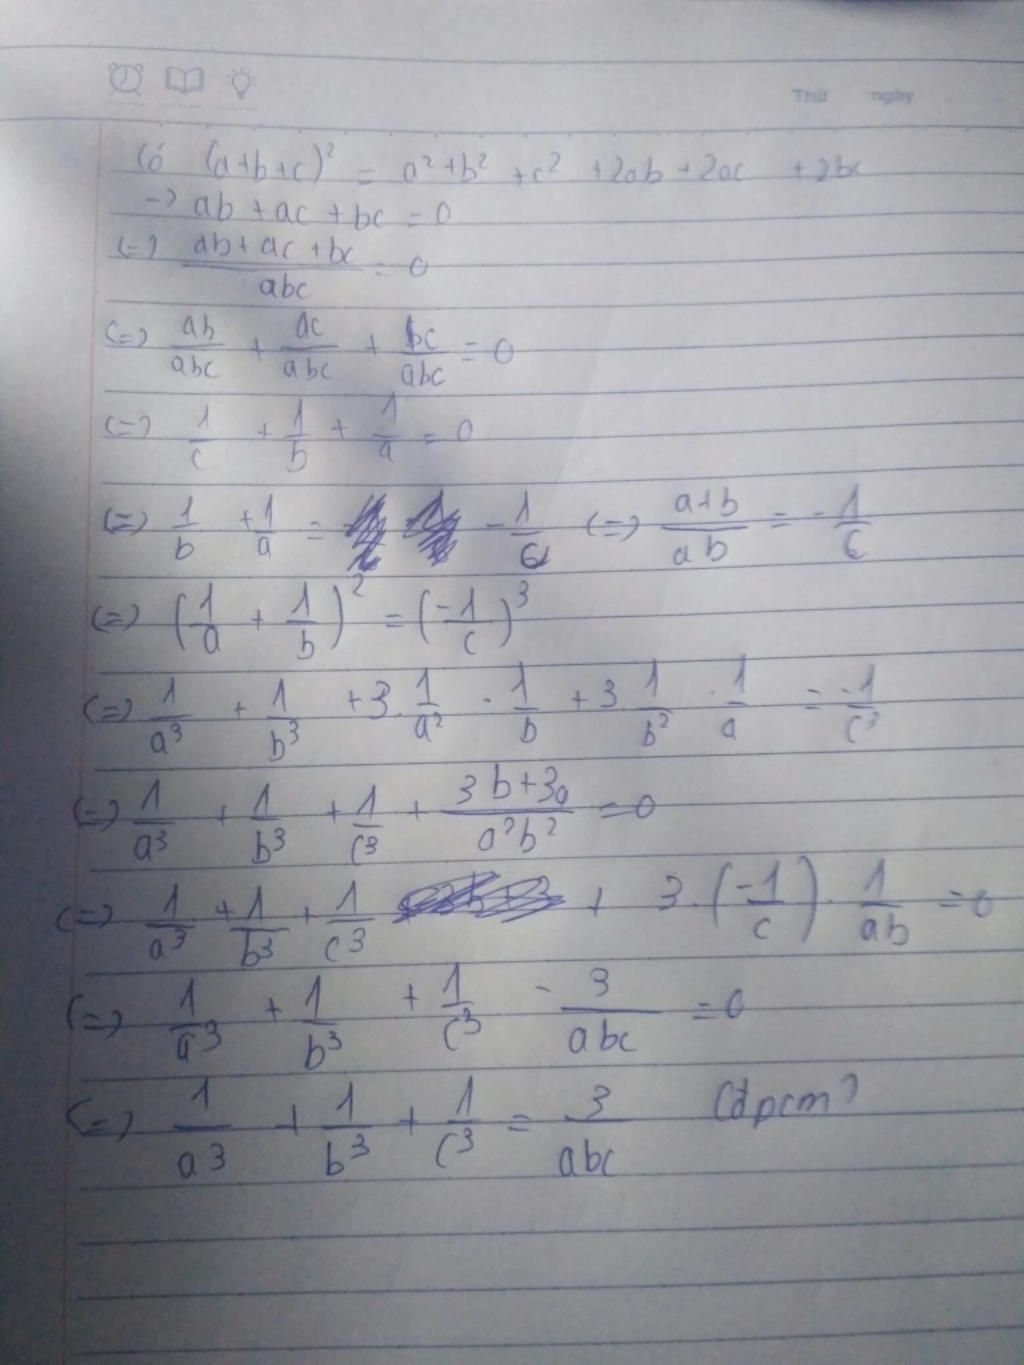 Thứ ngày
Có (a+b+c)² = a²+b² +c² +2ab+2ac +2bc
-> ab +ac +bc = 0
(=) (ab+ac+bc)/abc = 0
(=) ab/abc + ac/abc + bc/abc = 0
(=) 1/c + 1/b + 1/a = 0
(=) 1/b + 1/a = -1/c (=) (a+b)/ab = -1/c
(=) (1/a + 1/b)² = (-1/c)³
(=) 1/a³ + 1/b³ +3.1/a² . 1/b +3.1/b² . 1/a = -1/c³
(=) 1/a³ + 1/b³ + 1/c³ + (3b+3a)/a²b² = 0
(=) 1/a³ + 1/b³ + 1/c³ + 3.(-1/c). 1/ab = 0
(=) 1/a³ + 1/b³ + 1/c³ - 3/abc = 0
(=) 1/a³ + 1/b³ + 1/c³ = 3/abc (đpcm)